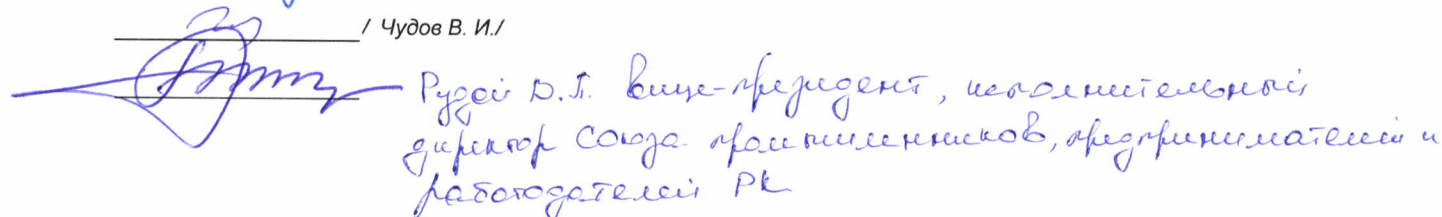 / Чудов В. И./
Рудой Д.П. вице-президент, исполнительный
директор Союза промышленников, предпринимателей и
работодателей РК